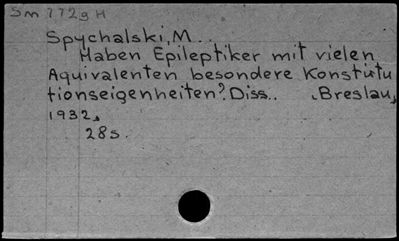 Sm 772g H
Spychalski, M..
Haben Epileptiker mit vielen
Aquivalenten besondere Konstutu
tionseigenheiten? Diss.. Breslau,
1932,
28s.